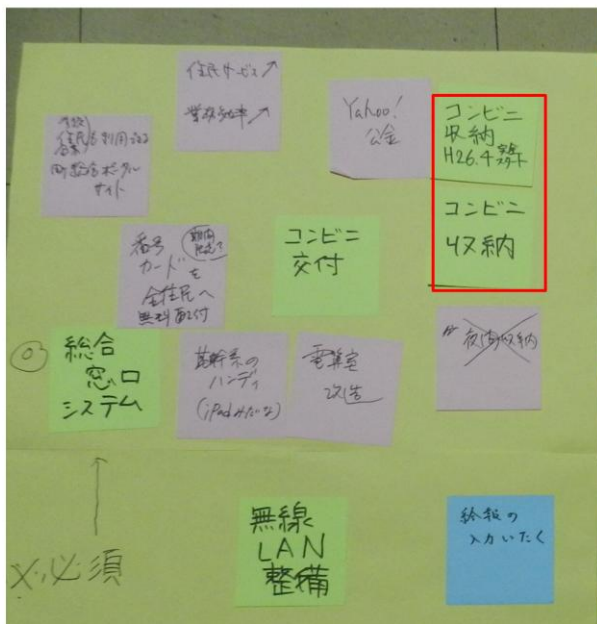 住民サービス↗
業務効率↗
Yahoo!
公金
コンビニ
収納
H26.4
スタート
コンビニ
収納
住民も利用できる
町総合ポータル
サイト
番号
カードを
全住民へ
無料配付
コンビニ
交付
総合
窓口
システム
基幹系の
ハンディ
(iPadみたいな)
電算室
改造
夜間収納
無線
LAN
整備
給報の
入力いたく
※必須